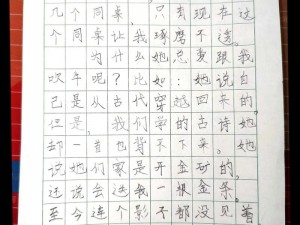 几个同桌，只有现在这
个同桌让我琢磨不透。
为什么她总爱跟我
吹牛呢？比如：她说自
己是从古代穿越回来的，
但是，我们学的古诗她
却一直也背不下来。她
说她们家是开金矿的，
还说会送我一根金条，
至今连个影子都没见着